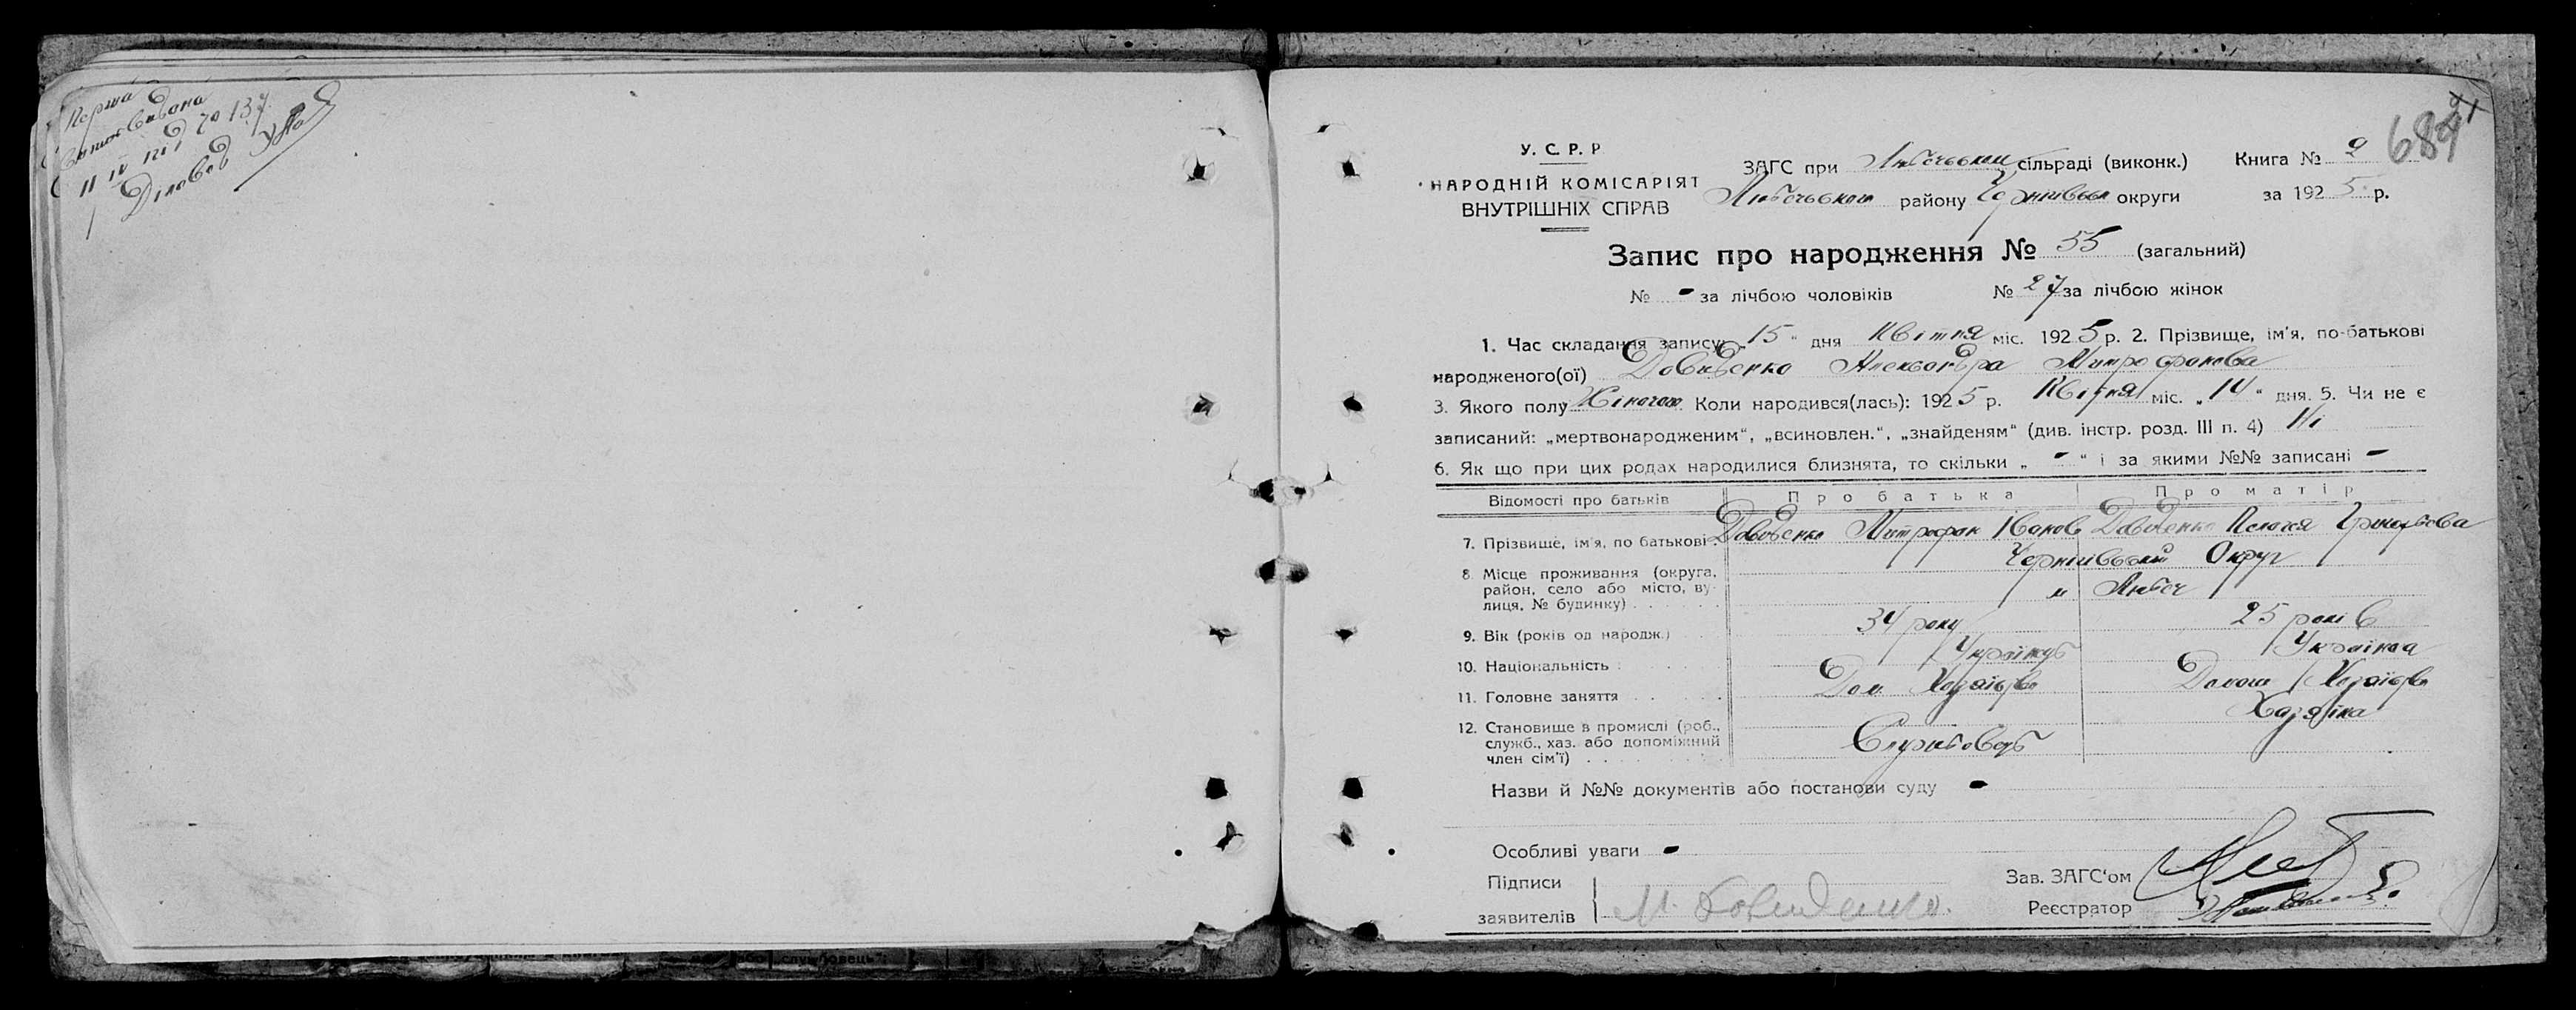 Перша
11 IV № 137
Діловод
У. С. Р. Р
НАРОДНІЙ КОМІСАРІЯТ
ВНУТРІШНІХ СПРАВ
ЗАГС при Любечьском сільраді (виконк.) Книга № 2
Любечьском району Чернігівськ округи за 1925 р.
684
Запис про народження № 55 (загальний)
№ - за лічбою чоловіків № 27 за лічбою жінок
1. Час складання запису: „15“ дня Квітня міс. 1925 р. 2. Прізвище, ім'я, по-батькові
народженого(ої) Давиденко Александра Митрофанова
3. Якого полу Жіночого Коли народився(лась): 1925 р. Квітня міс. „14“ дня. 5. Чи не є
записаний: „мертвонародженим“, „всиновлен.“, „знайденям“ (див. інстр. розд. III п. 4) Ні
6. Як що при цих родах народилися близнята, то скільки „-“ і за якими №№ записані -
Відомості про батьків Про батька Про матір
7. Прізвище, ім'я, по батькові. Давиденко Митрофан Іванов Давиденко Пелагея Григорьева
8. Місце проживання (округа, Чернігівський Округ
район, село або місто, ву- м Любеч
лиця, № будинку)
9. Вік (років од народж.) 34 року 25 років
10. Національність Українець Українка
11. Головне заняття Дом. Хозяїство Домаш Хозяїство
12. Становище в промислі (роб., Хазяїка
служб., хаз. або допоміжний Службовець
член сім'ї)
Назви й №№ документів або постанови суду -
Особливі уваги -
Підписи Зав. ЗАГС'ом
заявителів М. Давиденко. Реєстратор